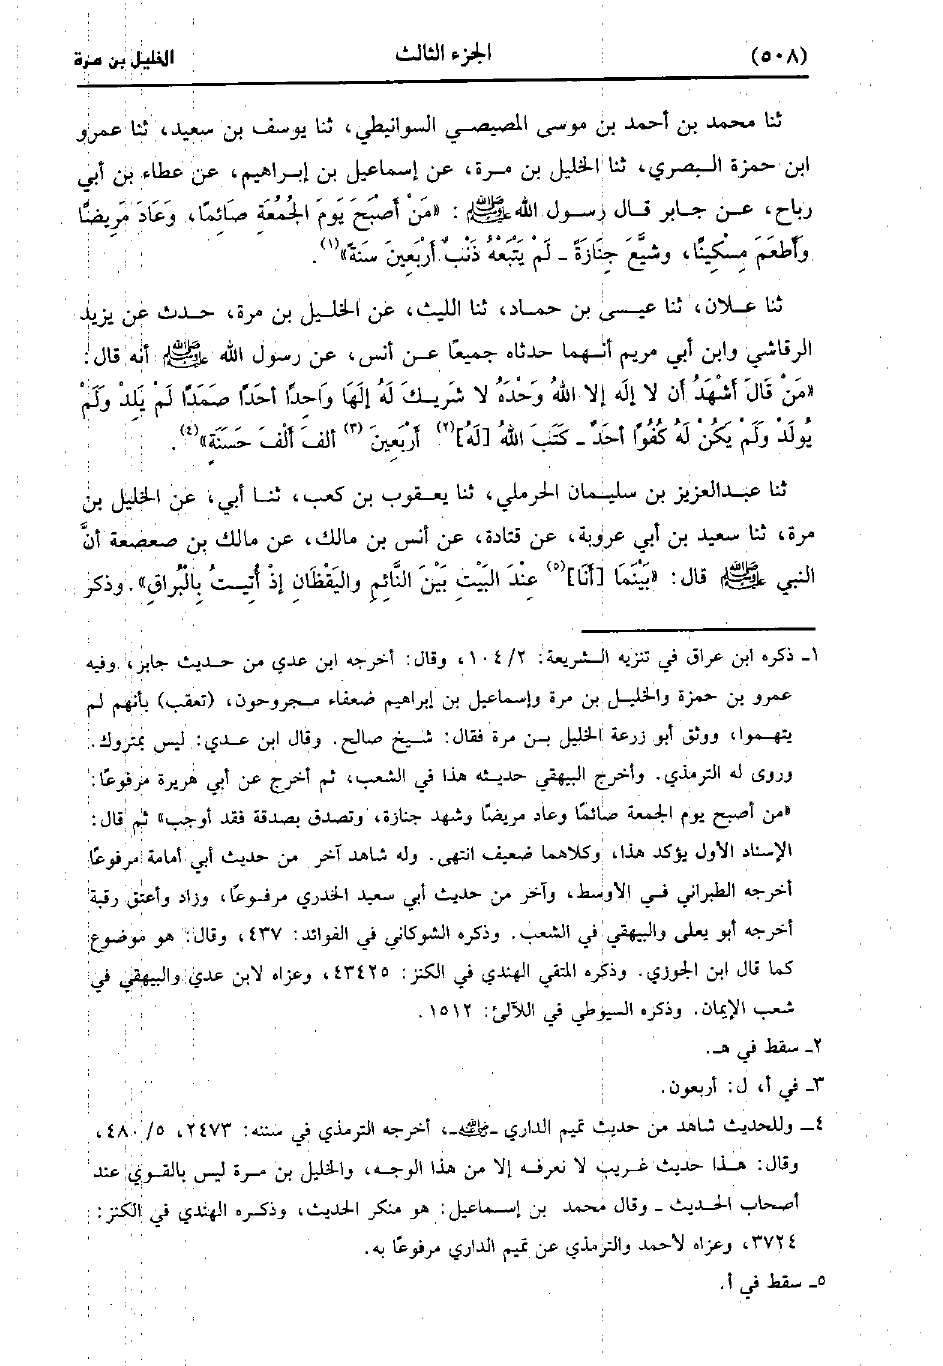 (٥٠٨) الجزء الثالث الخليل بن مرة
ثنا محمد بن أحمد بن موسى المصيصي السوانيطي، ثنا يوسف بن سعيد، ثنا عمرو
ابن حمزة البصري، ثنا الخليل بن مرة، عن إسماعيل بن إبراهيم، عن عطاء بن أبي
رباح، عن جابر قال رسول الله ﷺ : «مَنْ أَصْبَحَ يَوْمَ الْجُمُعَةِ صَائِمًا، وَعَادَ مَرِيضًا
وَأَطْعَمَ مِسْكِينًا، وشَيَّعَ جِنَازَةً ـ لَمْ يَتْبَعْهُ ذَنْبٌ أَرْبَعِينَ سَنَةً»(١).
ثنا علان، ثنا عيسى بن حماد، ثنا الليث، عن الخليل بن مرة، حدث عن يزيد
الرقاشي وابن أبي مريم أنهما حدثاه جميعًا عن أنس، عن رسول الله ﷺ أنه قال:
«مَنْ قَالَ أَشْهَدُ أن لا إلَه إلا اللهُ وَحْدَهُ لا شَرِيكَ لَهُ إِلَهَا وَاحِداً أحَداً صَمَدًا لَمْ يَلِدْ وَلَمْ
يُولَدْ وَلَمْ يَكُنْ لَهُ كُفُوًا أحَدٌ ـ كَتَبَ اللهُ [لَهُ](٢) أَرْبَعِينَ (٣) ألفَ أَلْفَ حَسَنَةٍ»(٤).
ثنا عبدالعزيز بن سليمان الحرملي، ثنا يعقوب بن كعب، ثنا أبي، عن الخليل بن
مرة، ثنا سعيد بن أبي عروبة، عن قتادة، عن أنس بن مالك، عن مالك بن صعصعة أنَّ
النبي ﷺ قال: «بَيْنَمَا [أَنَا](٥) عِنْدَ البَيْتِ بَيْنَ النَّائِمِ واليَقْظَانِ إذْ أُتِيتُ بِالْبُرَاقِ». وذكر
١ـ ذكره ابن عراق في تنزيه الشريعة: ١٠٤/٢، وقال: أخرجه ابن عدي من حديث جابر، وفيه
عمرو بن حمزة والخليل بن مرة وإسماعيل بن إبراهيم ضعفاء مجروحون، (تعقب) بأنهم لم
يتهموا، ووثق أبو زرعة الخليل بن مرة فقال: شيخ صالح. وقال ابن عدي: ليس بمتروك.
وروى له الترمذي. وأخرج البيهقي حديثه هذا في الشعب، ثم أخرج عن أبي هريرة مرفوعًا:
«من أصبح يوم الجمعة صائمًا وعاد مريضًا وشهد جنازة، وتصدق بصدقة فقد أوجب» ثم قال:
الإسناد الأول يؤكد هذا، وكلاهما ضعيف انتهى. وله شاهد آخر من حديث أبي أمامة مرفوعًا
أخرجه الطبراني في الأوسط، وآخر من حديث أبي سعيد الخدري مرفوعًا، وزاد وأعتق رقبة
أخرجه أبو يعلى والبيهقي في الشعب. وذكره الشوكاني في الفوائد: ٤٣٧، وقال: هو موضوع
كما قال ابن الجوزي. وذكره المتقي الهندي في الكنز: ٤٣٤٢٥، وعزاه لابن عدي والبيهقي في
شعب الإيمان. وذكره السيوطي في اللآلئ: ١٥١٢.
٢ـ سقط في هـ.
٣ـ في أ، ل: أربعون.
٤ـ وللحديث شاهد من حديث تميم الداري ـ رضي الله عنه ـ، أخرجه الترمذي في سننه: ٢٤٧٣، ٤٨٠/٥،
وقال: هذا حديث غريب لا نعرفه إلا من هذا الوجه، والخليل بن مرة ليس بالقوي عند
أصحاب الحديث ـ وقال محمد بن إسماعيل: هو منكر الحديث، وذكره الهندي في الكنز:
٣٧٢٤، وعزاه لأحمد والترمذي عن تميم الداري مرفوعًا به.
٥ـ سقط في أ.